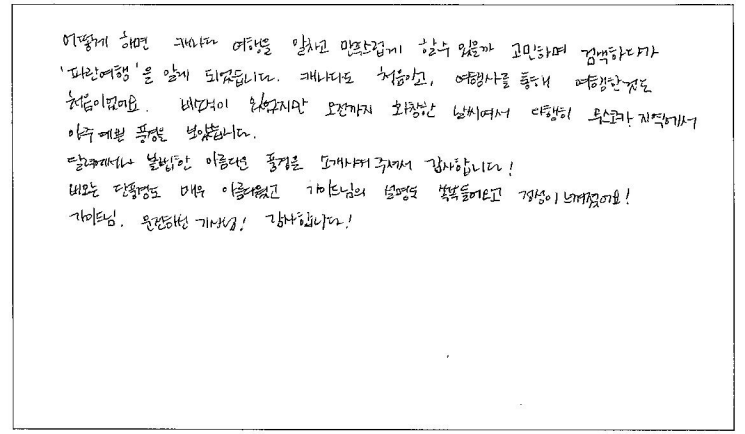 어떻게 하면 캐나다 여행을 알차고 만족스럽게 할수 있을까 고민하며 검색하다가
'파란여행'을 알게 되었습니다. 캐나다도 처음이고, 여행사를 통해 여행한것도
처음이었어요. 비소식이 있었지만 오전까지 화창한 날씨여서 다행히 무스코카 지역에서
아주 예쁜 풍경을 보았습니다.
달력에서나 볼법한 아름다운 풍경을 소개시켜 주셔서 감사합니다!
비오는 단풍명도 매우 아름다웠고 가이드님의 설명도 쏙쏙들어오고 정성이 느껴졌어요!
가이드님, 운전하신 기사님! 감사합니다!